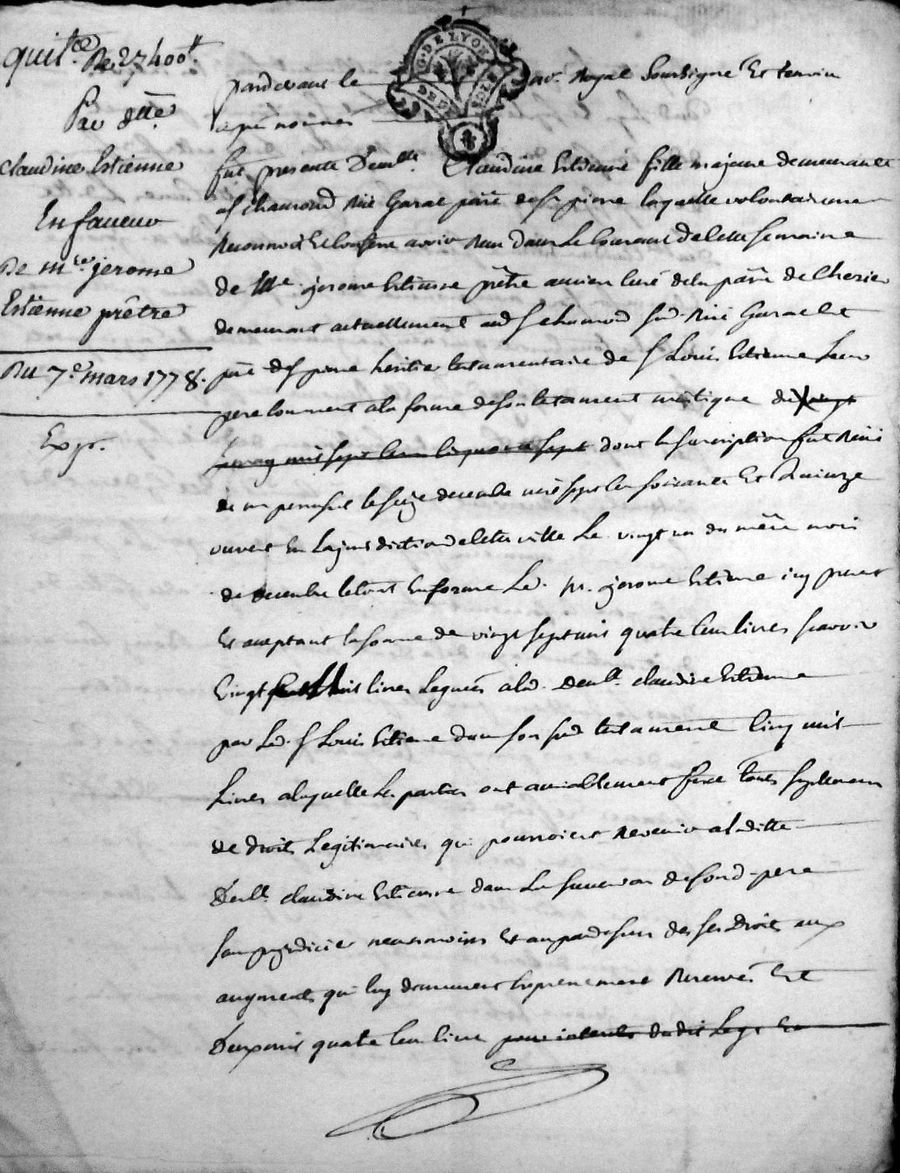 quit.ce De 27400tt
Par dlle
Claudine Estienne
En faveur
De mre jerome
Estienne prêtre
Du 7e mars 1778.
Exp.
G. DE LYON
pardevant le no.re Royal Soussigné Et temoin
apres nommés
fut presente Demlle Claudine Estienne fille majeure demeurante
a St chamond Rue Garat parsse de St pierre laquelle volontairement
Reconnoit Et Confesse avoir Recu dans Le Courant de cette Semaine
de Me jerome Estienne prêtre ancien curé de la parsse de Cherier
demeurant actuellement aud St chamond sud. Rue Garat et
psse de St pierre heritier testamentaire de Sr Louis Estienne Leur
pere comment a la forme de son testament mistique du vingt
mil sept cens cinquante sept dont la suscription fut Recue
de m le seize decembre mil sept cens soixante Et Quinze
ouvert En la jurisdiction de cette ville Le vingt un du même mois
de decembre le tout En forme Led. Me jerome Estienne icy present
Et aceptant la somme de vingt sept mil quatre Cens livres scavoir
Vingt mil livres Legués a lad. Demlle claudine Estienne
par Led. Sr Louis Estienne dans son sud. testament Cinq mil
Livres a laquelle Les parties ont amiablement fixé tous supplemens
de droits Legitimaires qui pourroient Revenir a laditte
Demlle claudine Estienne dans La succession de sond. pere
sans prejudicier neanmoins Et au pardessus de ses Droits aux
augments qui luy demeurent Expressement Reservés Et
Deux mil quatre Cens livres pour interets dudit Legs Et